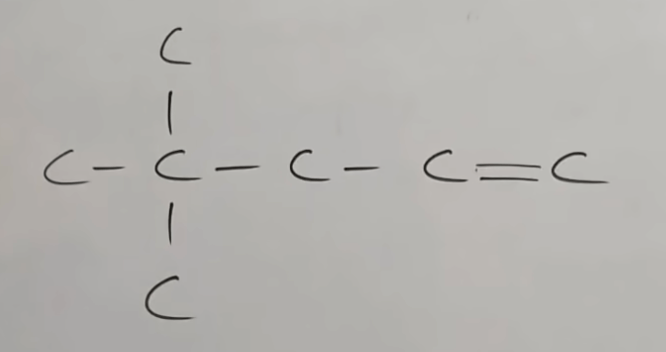 C
|
C - C - C - C = C
|
C